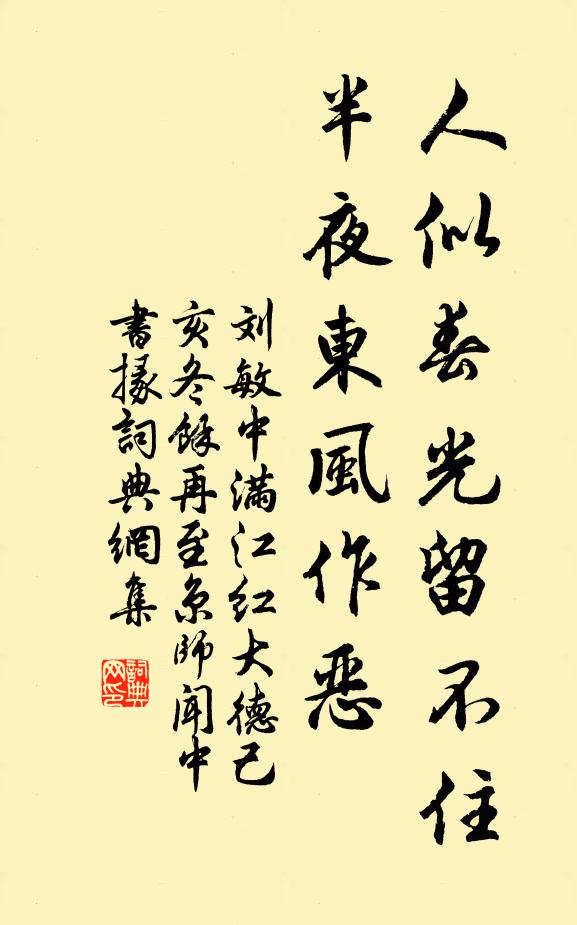 人似春光留不住
半夜東風作惡
刘敏中满江红大德己
亥冬餘再至京師聞中
書掾詞典網集
詞典
网印